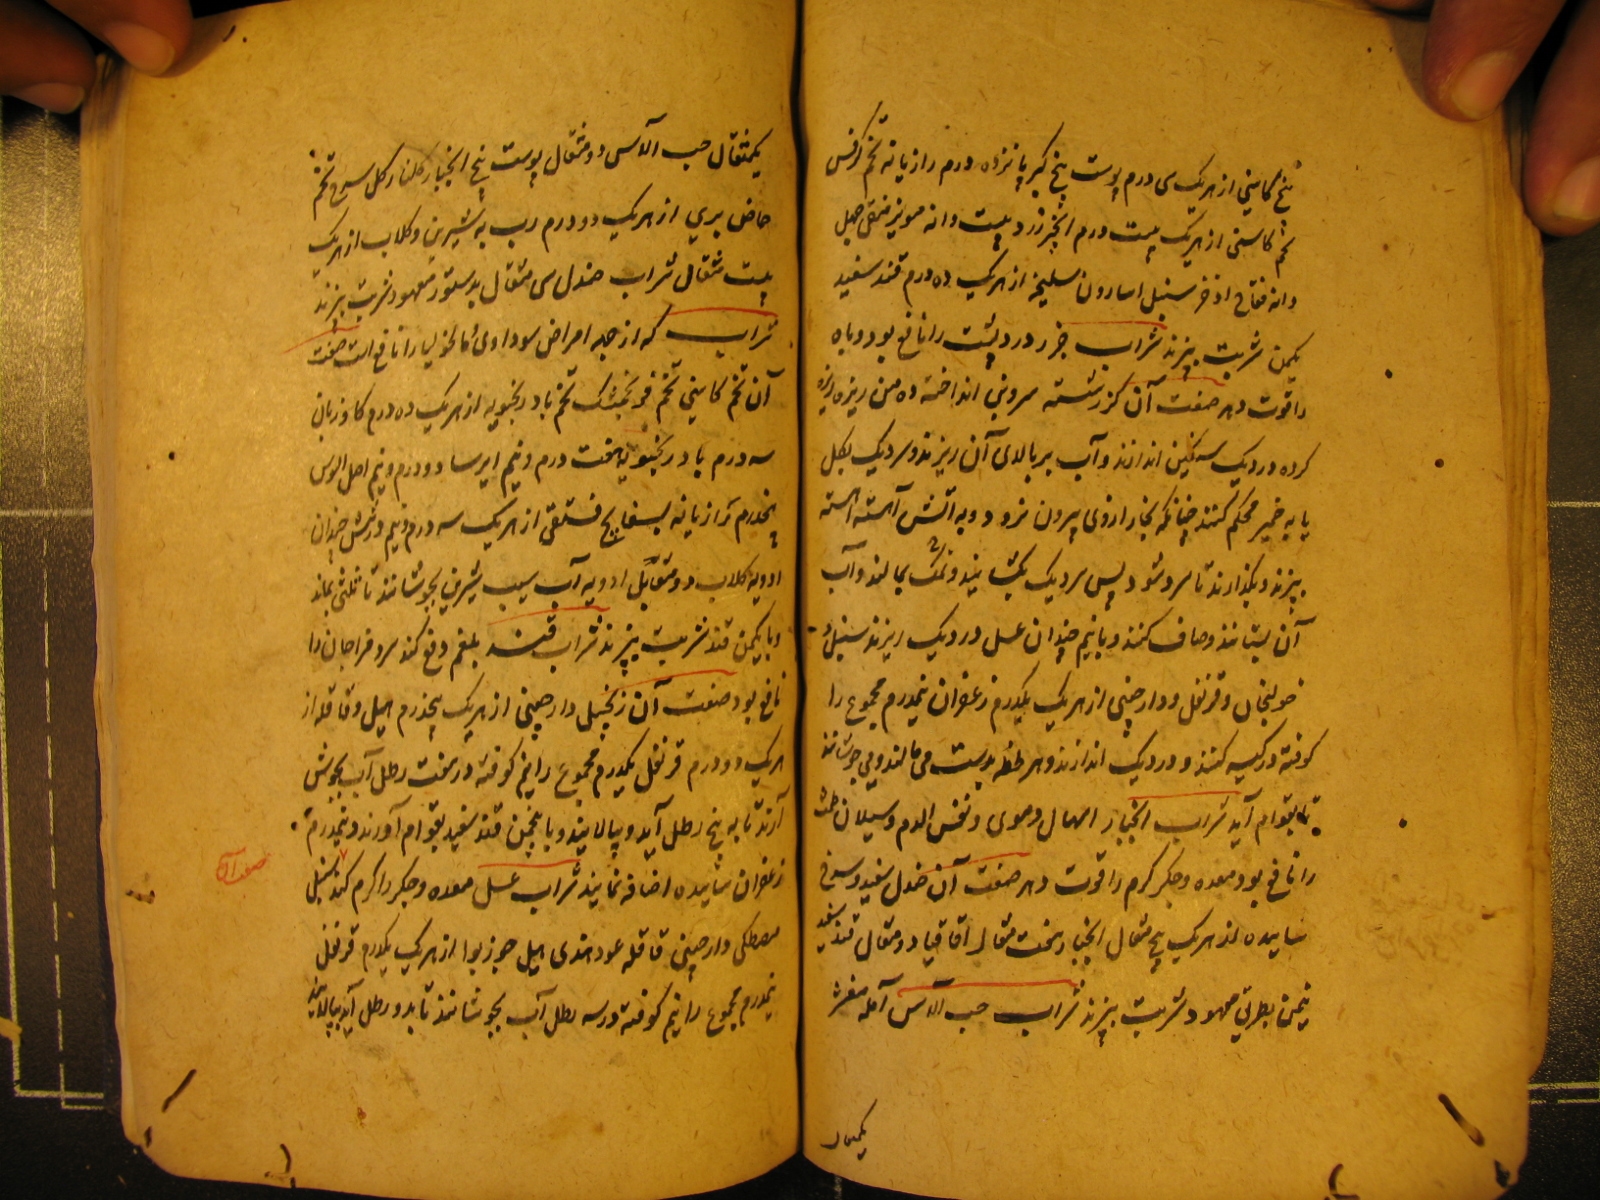 بیخ کاسنی از هریک سی درم پوست بیخ کبر پانزده درم رازیانه تخم کرفس
تخم کاسنی از هریک بیست درم انجیر زرد بیست دانه مویز منقی چهل
دانه فقاح اذخر سنبل اسارون سلیخه از هریک ده درم قند سفید
یکمن شربت بپزند شراب جزر درد پشت را نافع بود و باه
را قوت دهد صفت آن گزر شسته سر و بن انداخته ده من ریزه ریزه
کرده در دیک سنگین اندازند و آب بر بالای آن ریزند و سر دیک بکل
یا به خمیر محکم کنند چنانکه بخار ازوی بیرون نرود و به اتش آهسته اهسته
بپزند و بگذارند تا سرد شود پس سر دیک بگشایند و نمک بمالند و آب
آن بستانند و صاف کنند و با نیم چندان عسل در دیک ریزند سنبل و
خولنجان و قرنفل و دارچینی از هریک یکدرم زعفران نیمدرم مجموع را
کوفته در کیسه کنند و در دیک اندازند و هر لحظه بدست می مالند و می جوشانند
تا بقوام آید شراب انجبار اسهال دموی و نفس الدم و سیلان طمث
را نافع بود معده و جگر گرم را قوت دهد صفت آن صندل سفید و سرخ
سائیده از هریک پنج مثقال انجبار هفت مثقال اقاقیا دو مثقال قند سفید
نیمن بطریق معهود شربت بپزند شراب حب الآس آمله مقشر
یکمثقال
یکمثقال حب الآس دو مثقال پوست بیخ انجبار گلنار گل سرخ تخم
حماض بری از هریک دو درم رب به شیرین و کلاب از هریک
بیست مثقال شراب صندل سی مثقال بدستور معهود شربت بپزند
شراب که از جمله امراض سوداوی و مالخولیا را نافع است صفت
آن تخم کاسنی تخم فرنجمشک تخم بادرنجبویه از هریک ده درم کاوزبان
سه درم بادرنجبویه هفت درم و نیم ایرسا دو درم و نیم اصل السوس
پنجدرم رازیانه بسفایج فستقی از هریک سه درم و نیم و شش چندان
ادویه کلاب دو مقابل ادویه آب سیب شیرین بجوشانند تا ثلثی بماند
و با یکمن قند شربت بپزند شراب قند بلغم دفع کند سرد مزاجان را
نافع بود صفت آن زنجبیل دارچینی از هریک پنجدرم هیل و قاقله از
هریک دو درم قرنفل یکدرم مجموع را نیم کوفته در هفت رطل آب بجوش
آرند تا به پنج رطل آید و بپالایند و با پنجمن قند سفید بقوام آورند و نیمدرم
زعفران سائیده اضافه نمایند شراب عسل معده و جگر را گرم کند سنبل
صفت آن
مصطکی دارچینی قاقله عود هندی هیل جوز بوا از هریک یکدرم قرنفل
نیمدرم مجموع را نیم کوفته در سه رطل آب بجوشانند تا بدو رطل آید بپالایند